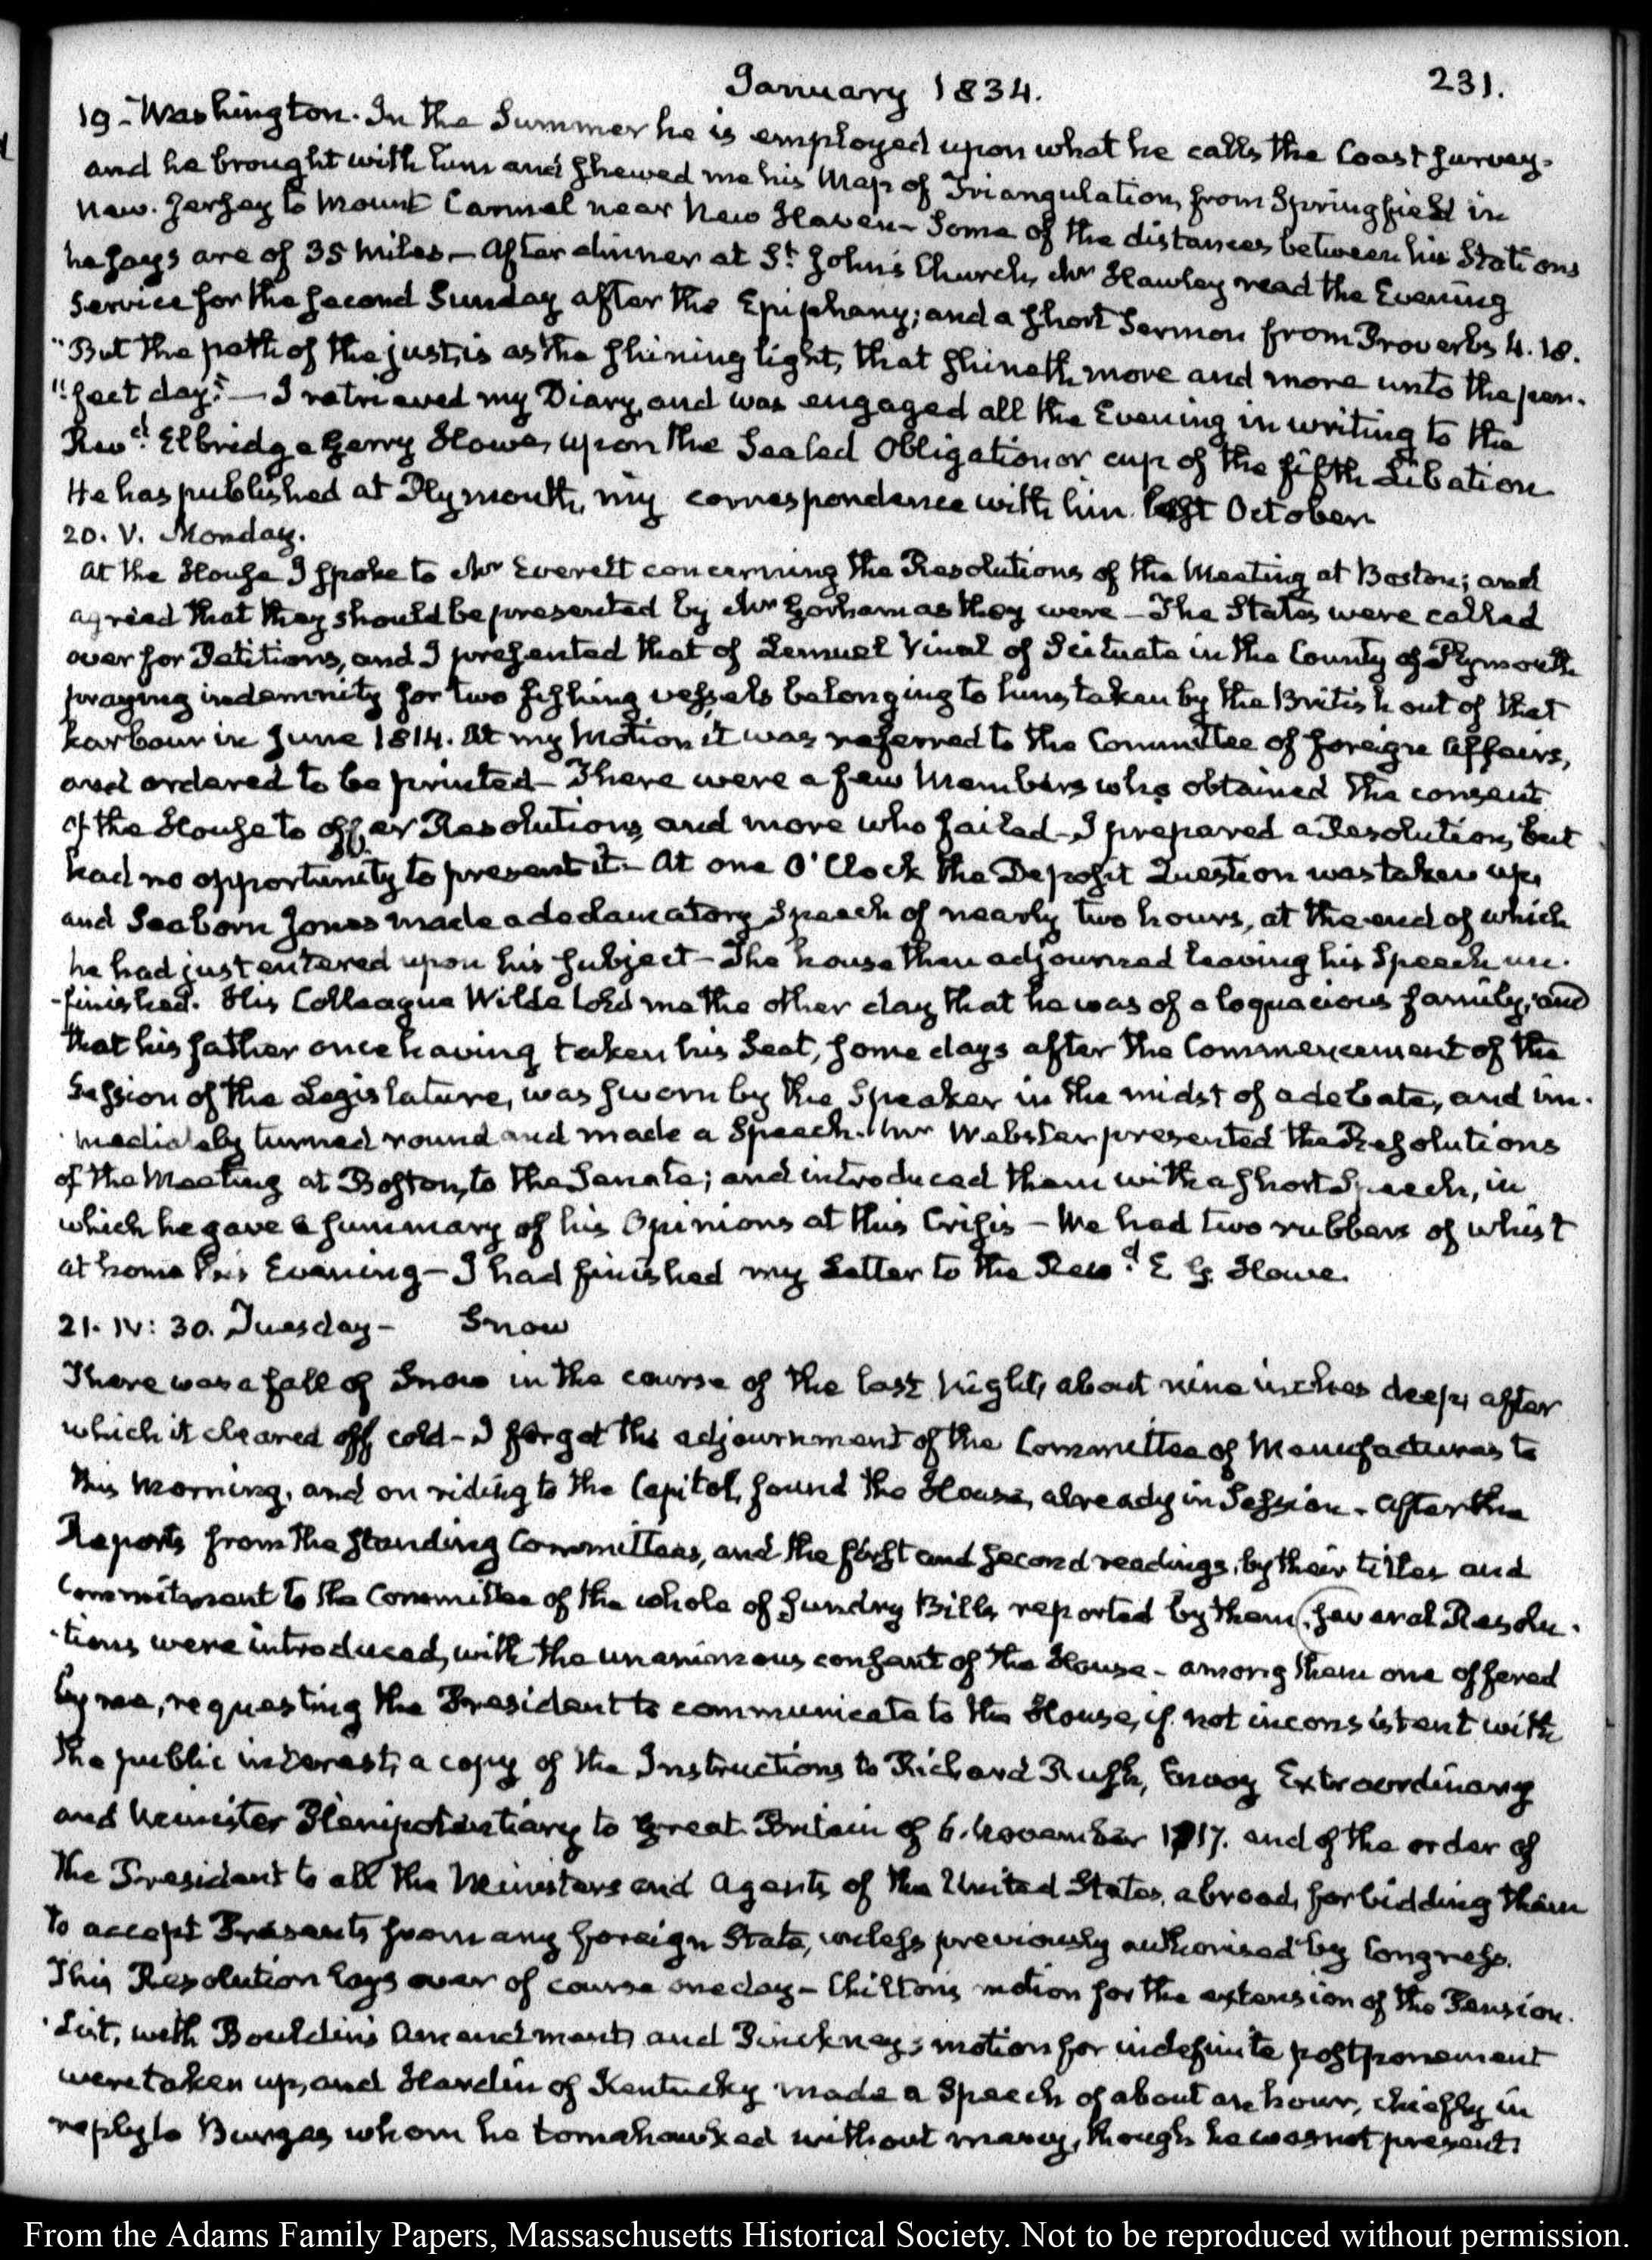 January 1834.
231.
19 - Washington. In the Summer he is employed upon what he calls the Coast survey.
and he brought with him and shewed me his Map of Triangulation, from Springfield in
New. Jersey to Mount Carmel near New Haven - Some of the distances between his Stations
he says are of 35 miles. - After dinner at St. John's Church, Mr Hawley read the Evening
Service for the second Sunday after the Epiphany; and a short Sermon from Proverbs 4. 18.
"But the path of the just, is as the shining light, that shineth more and more unto the per-
"fect day." - I retrieved my Diary, and was engaged all the Evening in writing to the
Revd. Elbridge Gerry Howe, upon the Sealed Obligation or cup of the fifth Libation
He has published at Plymouth, my correspondence with him last October
20. V. Monday.
At the House I spoke to Mr Everett concerning the Resolutions of the Meeting at Boston; and
agreed that they should be presented by Mr Gorham as they were - The States were called
over for Petitions, and I presented that of Lemuel Vinal of Scituate in the County of Plymouth
praying indemnity for two fishing vessels belonging to him taken by the British out of that
harbour in June 1814. At my Motion it was referred to the Committee of foreign Affairs,
and ordered to be printed - There were a few Members who obtained the consent
of the House to offer Resolutions, and more who failed - I prepared a Resolution, but
had no opportunity to present it - At one O'Clock the Deposit Question was taken up,
and Seaborn Jones made a declamatory Speech of nearly two hours, at the end of which
he had just entered upon his subject - The house then adjourned leaving his Speech un-
-finished. His Colleague Wilde told me the other day that he was of a loquacious family, and
that his father once having taken his Seat, some days after the Commencement of the
Session of the Legislature, was sworn by the Speaker in the midst of a debate, and im-
mediately turned round and made a Speech. Mr Webster presented the Resolutions
of the Meeting at Boston, to the Senate; and introduced them with a short Speech, in
which he gave a summary of his Opinions at this Crisis - We had two rubbers of whist
at home this Evening - I had finished my Letter to the Revd. E G. Howe.
21. IV: 30. Tuesday - Snow
There was a fall of Snow in the course of the last Night, about nine inches deep, after
which it cleared off cold - I forgot the adjournment of the Committee of Manufactures to
this Morning, and on riding to the Capitol, found the House, already in Session - After the
Reports from the standing Committees, and the first and second readings, by their titles and
commitment to the Committee of the whole of sundry Bills reported by them, several Resolu-
-tions were introduced, with the unanimous consent of the House - among them one offered
by me, requesting the President to communicate to the House, if not inconsistent with
the public interest, a copy of the Instructions to Richard Rush, Envoy Extraordinary
and Minister Plenipotentiary to Great Britain of 6. November 1817. and of the order of
the President to all the Ministers and Agents of the United States, abroad, forbidding them
to accept Presents from any foreign State, unless previously authorised by Congress.
This Resolution lays over of course one day - Chilton's motion for the extension of the Pension-
-List, with Bouldin's Amendment, and Pinckney's motion for indefinite postponement
were taken up, and Hardin of Kentucky made a Speech of about an hour, chiefly in
reply to Burges whom he tomahawked without mercy, though he was not present.
From the Adams Family Papers, Massaschusetts Historical Society. Not to be reproduced without permission.